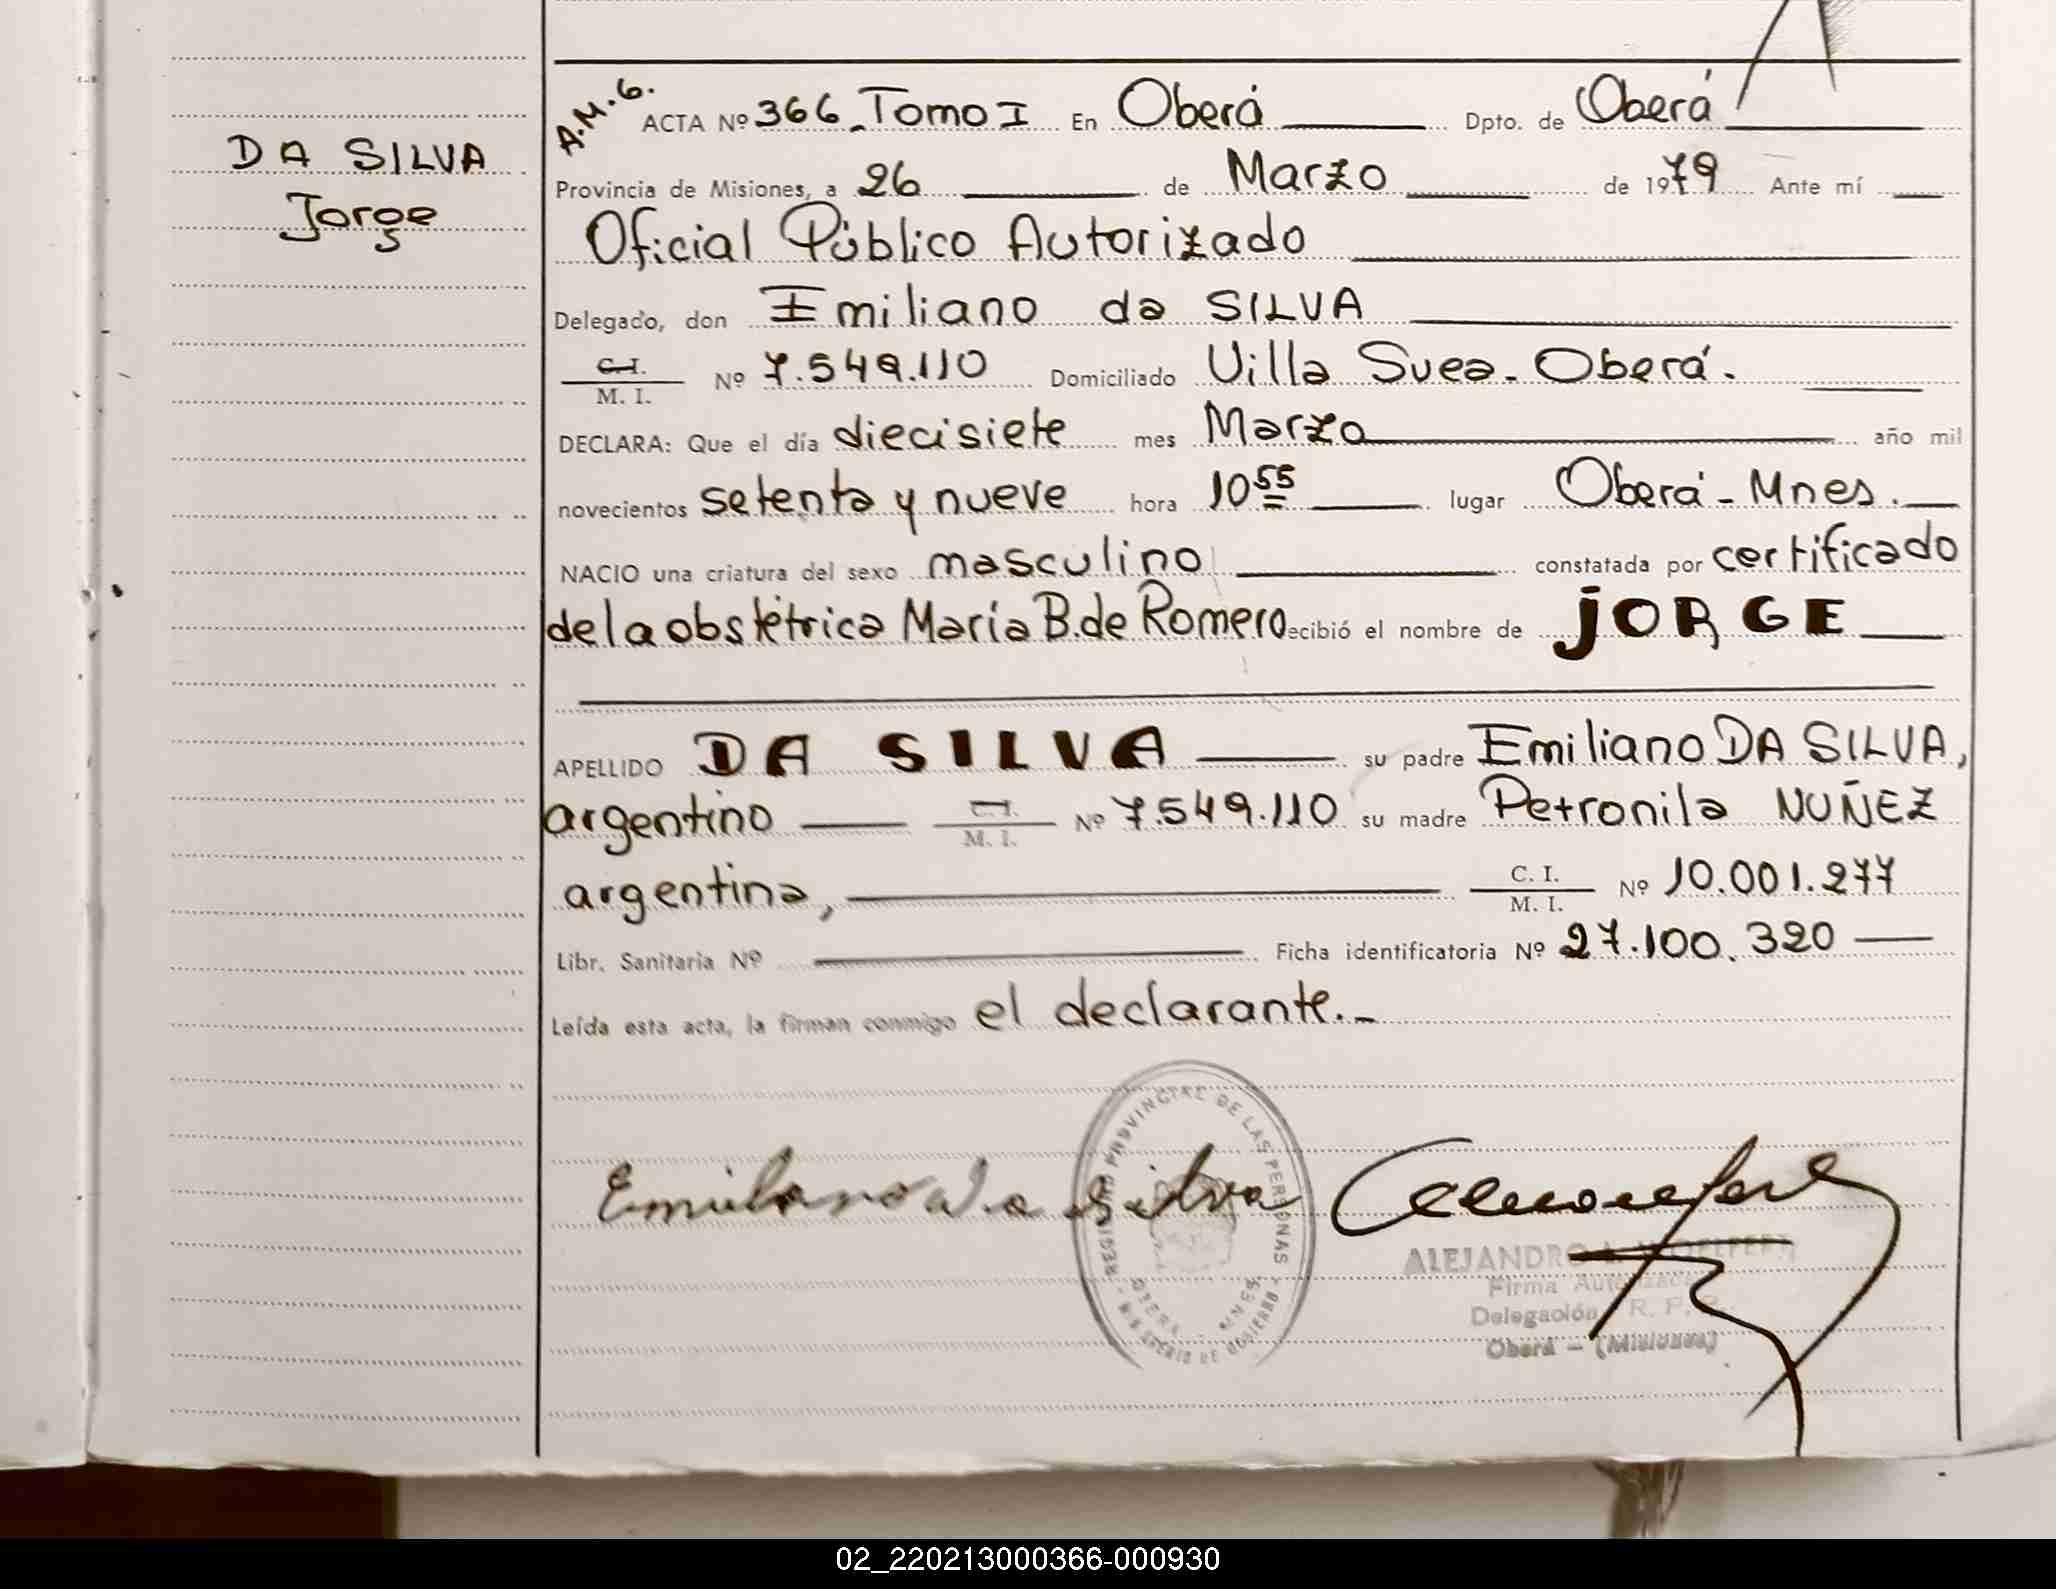 DA SILVA
Jorge
A.M.G.
ACTA Nº 366 - Tomo I En Oberá Dpto. de Oberá
Provincia de Misiones, a 26 de Marzo de 1979 Ante mí
Oficial Público Autorizado
Delegado, don Emiliano da SILVA
C.I. / M. I. Nº 7.549.110 Domiciliado Villa Suea - Oberá.
DECLARA: Que el día diecisiete mes Marzo año mil
novecientos setenta y nueve hora 10 55 lugar Oberá - Mnes.
NACIO una criatura del sexo masculino constatada por certificado
de la obstétrica María B. de Romero ecibió el nombre de JORGE
APELLIDO DA SILVA su padre Emiliano DA SILVA,
argentino C.I. / M. I. Nº 7.549.110 su madre Petronila NUÑEZ
argentina, C. I. / M. I. Nº 10.001.277
Libr. Sanitaria Nº Ficha identificatoria Nº 27.100.320
Leída esta acta, la firman conmigo el declarante.-
Emiliano da Silva
REGISTRO PROVINCIAL DE LAS PERSONAS - MINISTERIO DE GOBIERNO -
OBERA MNES.
ALEJANDRO
Firma Autorizada
Delegación R. P. P.
Oberá - (Misiones)
02_220213000366-000930